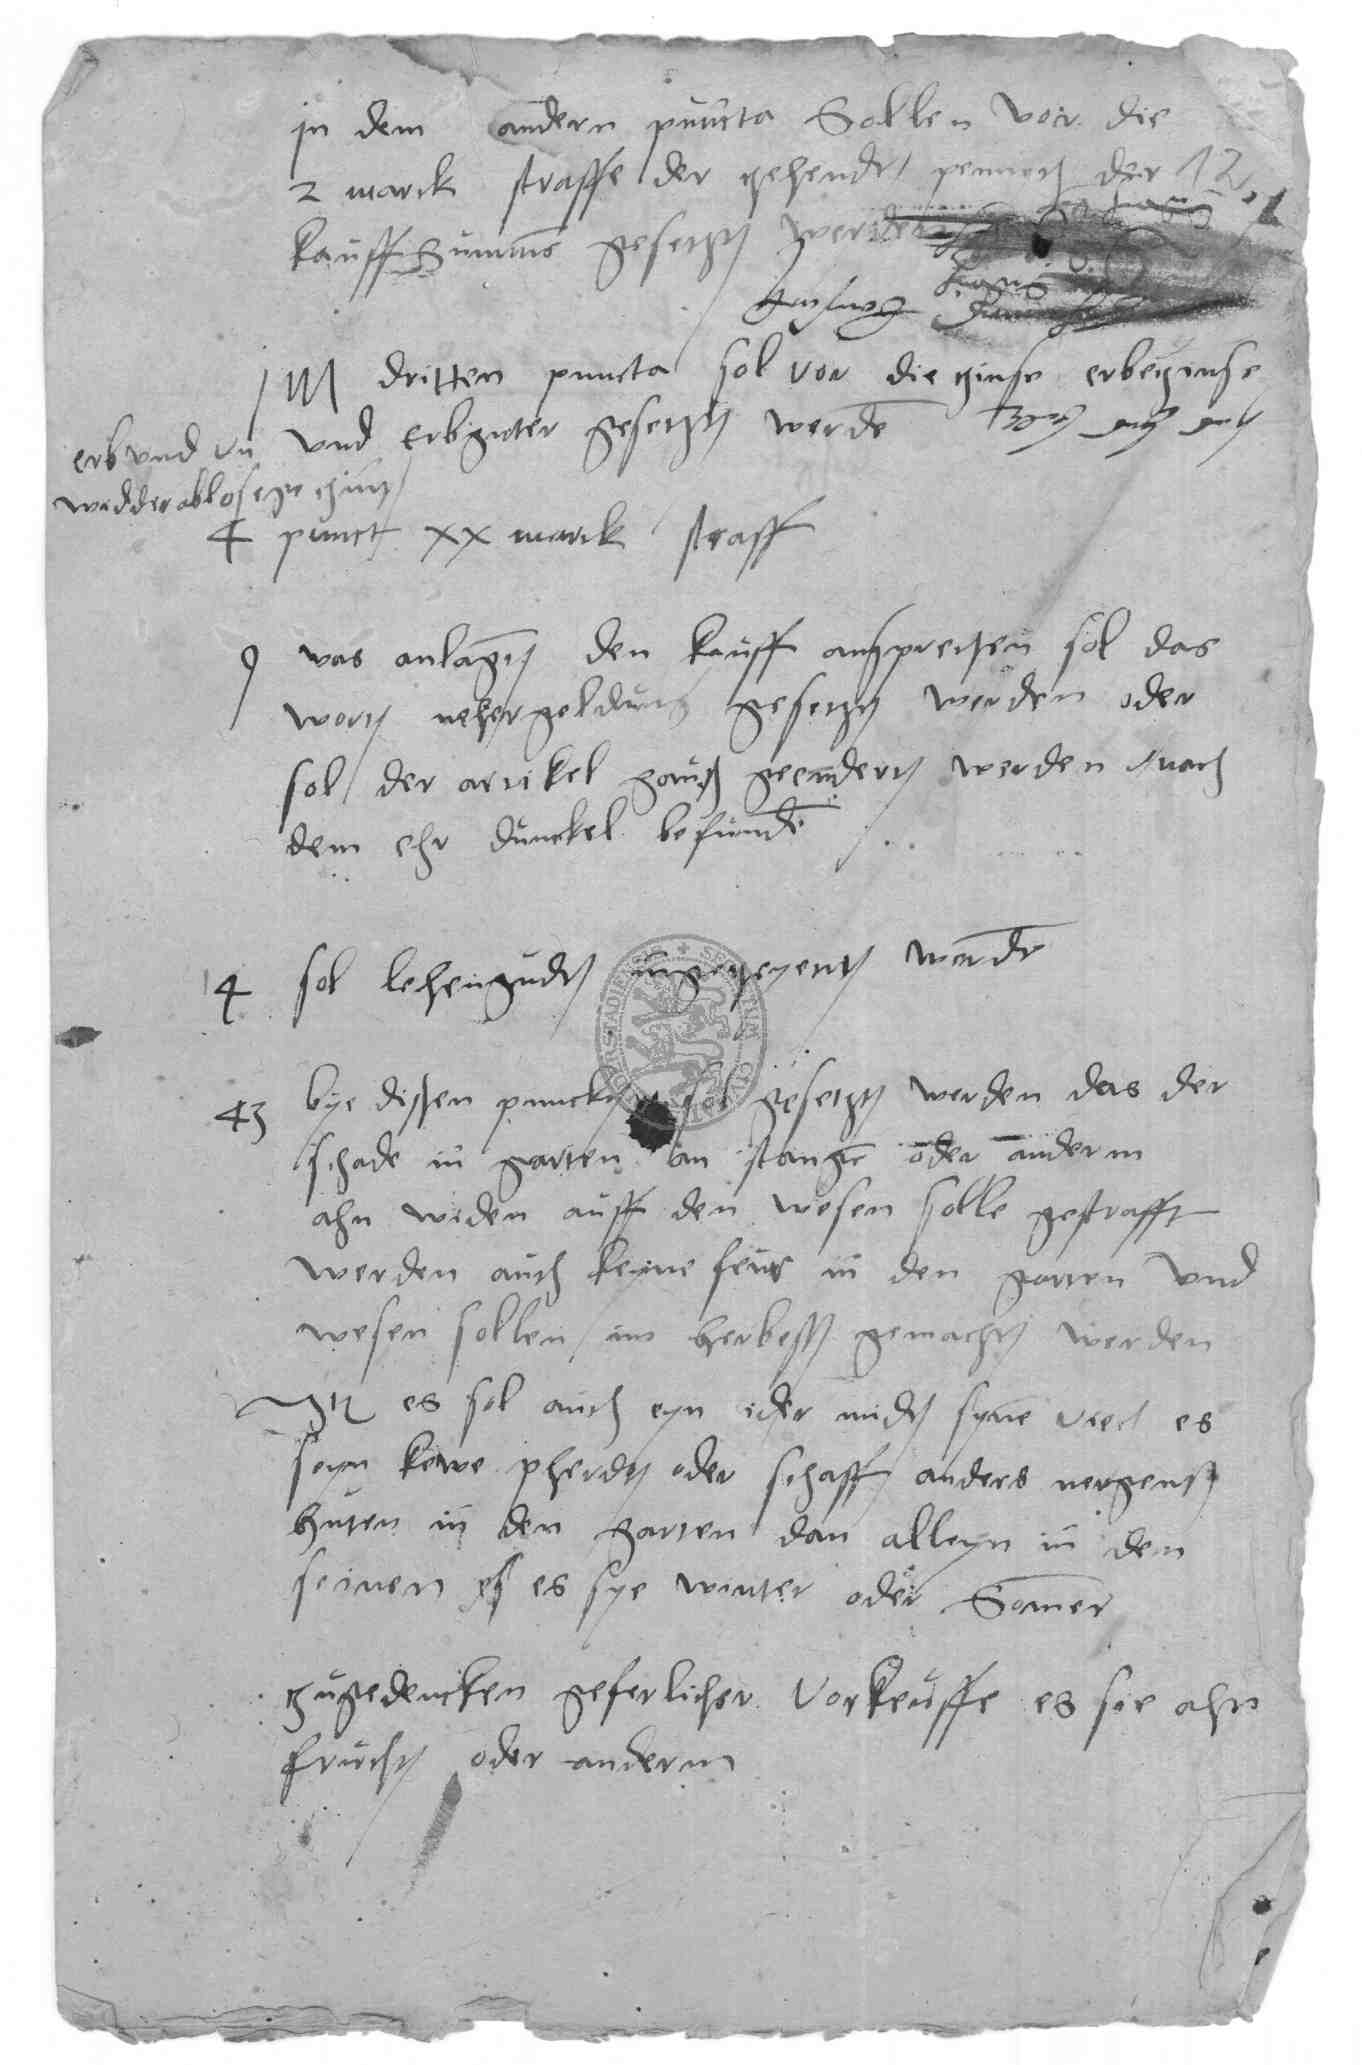 in dem andern puncta Sollen vor die
2 marck straffe der zehendt pennig der
kauff Summe gesetzt werden
Im dritten puncta sol vor die zinse erbezinse
und Erbguter gesetzt werde
erb und un
wedderablosege zins
4 punct xx marck straff
9 was anlagt den kauff ansprechen sol das
wort nehergeldung gesetzt werden oder
sol der artikel gantz geendert werden nach
dem ehr dunckel befunde
14 sol lehengudt werde
43 bye dissen punckt sol gesetzt werden das der
schade in garten an stange oder anderm
ahn widen auff den wesen solle gestrafft
werden auch keyne feur in den garten und
wesen sollen im herbest gemacht werden
Itz es sol auch eyn ider midt syne viel es
seyn kewe pherdt oder schaff anders nergenst
huten in den garten dan alleyn in dem
seinen es sye winter oder Somer
zugedencken geferlicher vorkeuffe es sie ahn
frucht oder anderm